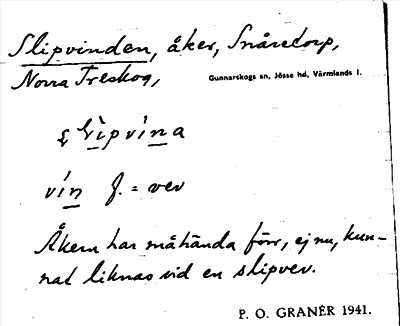 Slipvinden, åker, Snåretorp,
Norra Treskog,
Gunnarskogs sn, Jösse hd, Värmlands l.
vín f. = vev
Åkern har måhända förr, ej nu, kun-
nat liknas vid en slipvev.
P. O. GRANÉR 1941.